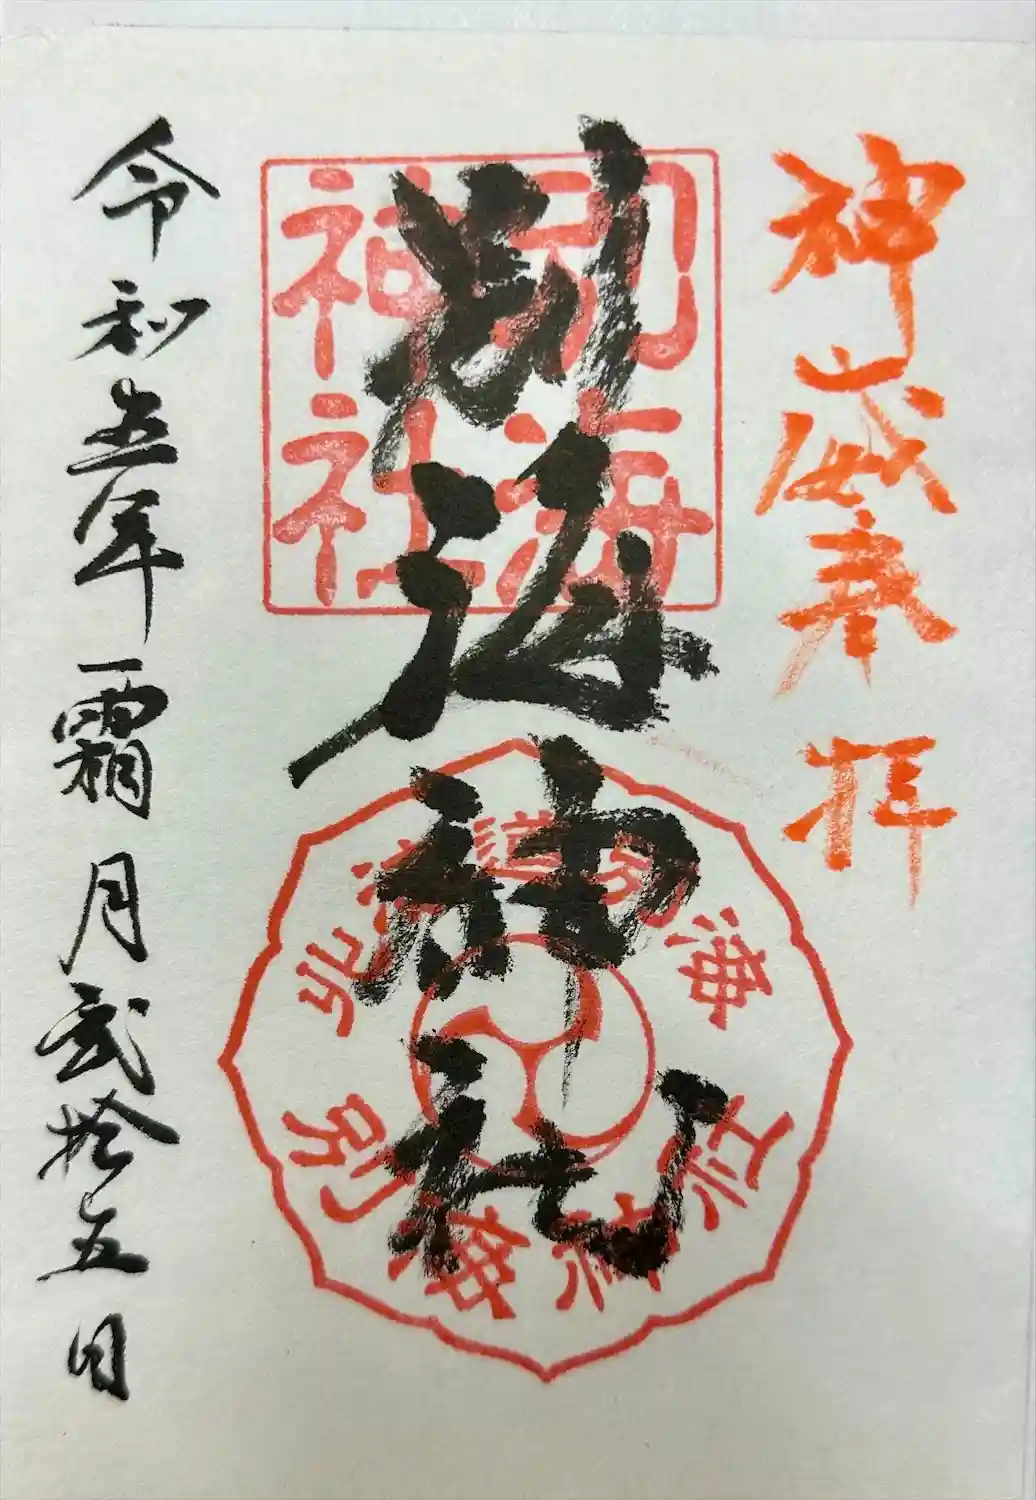 神威奉拝
別海神社
別海神社
令和五年霜月弐拾五日